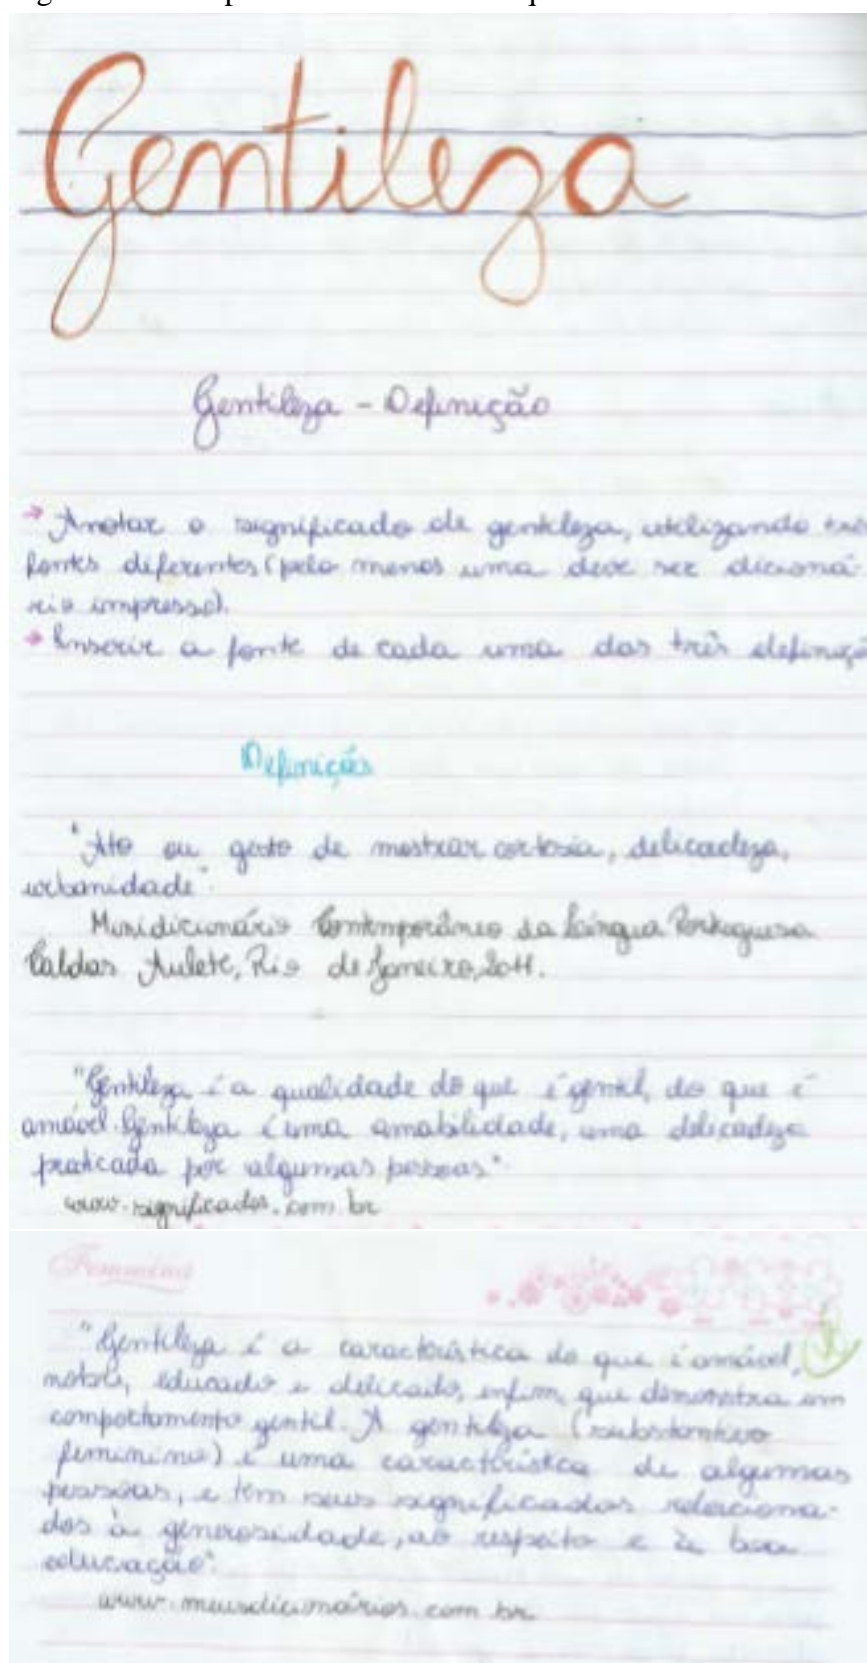 Gentileza
Gentileza - Definição
→ Anotar o significado de gentileza, utilizando
fontes diferentes (pelo menos uma deve ser dicioná-
rio impresso).
→ Inserir a fonte de cada uma das três
Definições
"Ato ou gesto de mostrar cortesia, delicadeza,
urbanidade".
Minidicionário Contemporâneo da Língua Portuguesa
Caldas Aulete, Rio de Janeiro, 2011.
"Gentileza é a qualidade do que é gentil, do que é
amável. Gentileza é uma amabilidade, uma delicadeza
praticada por algumas pessoas".
www.significados.com.br
Feminina
"Gentileza é a característica do que é amável,
nobre, educado e delicado, enfim, que demonstra um
comportamento gentil. A gentileza (substantivo
feminino) é uma característica de algumas
pessoas, e tem seus significados relaciona-
dos à generosidade, ao respeito e à boa
educação".
www.meusdicionários.com.br